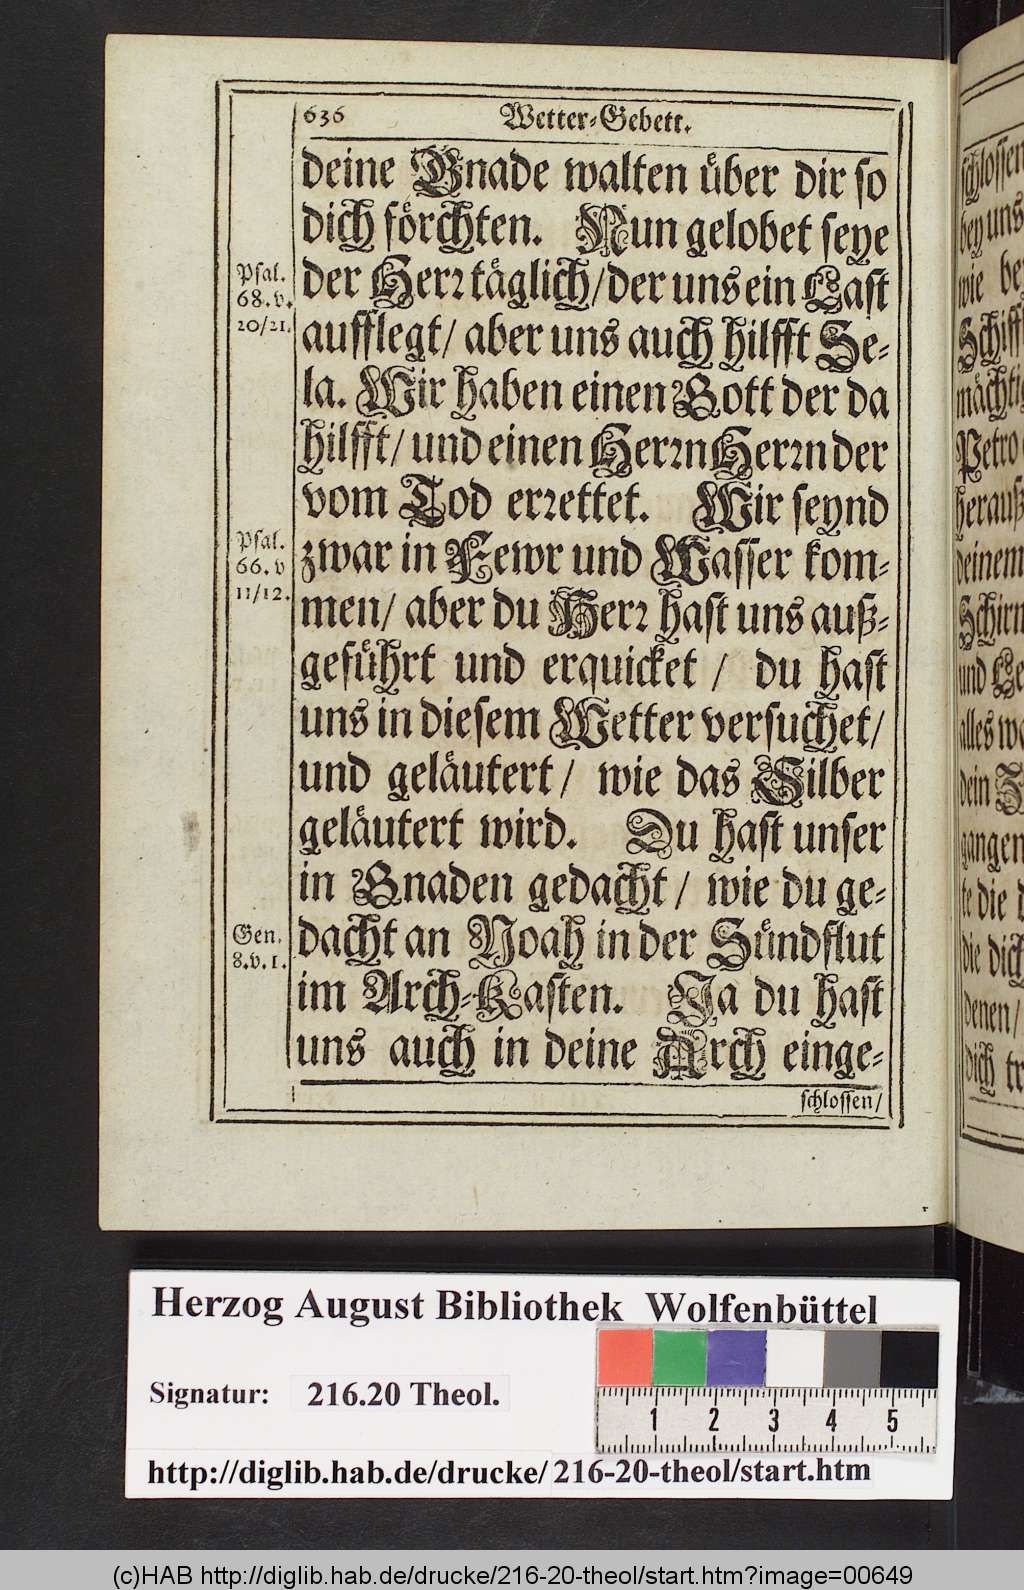 636 Wetter-Gebett.
deine Gnade walten über dir so
dich förchten. Nun gelobet seye
Psal.
68. v.
20/21.
der Herr täglich/ der uns ein Last
aufflegt/ aber uns auch hilfft Se-
la. Wir haben einen Gott der da
hilfft/ und einen Herrn Herrn der
vom Tod errettet. Wir seynd
Psal.
66. v
11/12.
zwar in Fewr und Wasser kom-
men/ aber du Herr hast uns auß-
geführt und erquicket / du hast
uns in diesem Wetter versuchet/
und geläutert / wie das Silber
geläutert wird. Du hast unser
in Gnaden gedacht / wie du ge-
Gen.
8. v. 1.
dacht an Noah in der Sündflut
im Arch-Kasten. Ja du hast
uns auch in deine Arch einge-
schlossen/
schlossen
bey uns
wie be
Schiff
mächti
Petro
herauß
deinem
Schirm
und Ge
alles wa
dein J
gangen
te die d
die dich
denen/
dich tr
Herzog August Bibliothek Wolfenbüttel
Signatur: 216.20 Theol.
1 2 3 4 5
http://diglib.hab.de/drucke/216-20-theol/start.htm
(c)HAB http://diglib.hab.de/drucke/216-20-theol/start.htm?image=00649